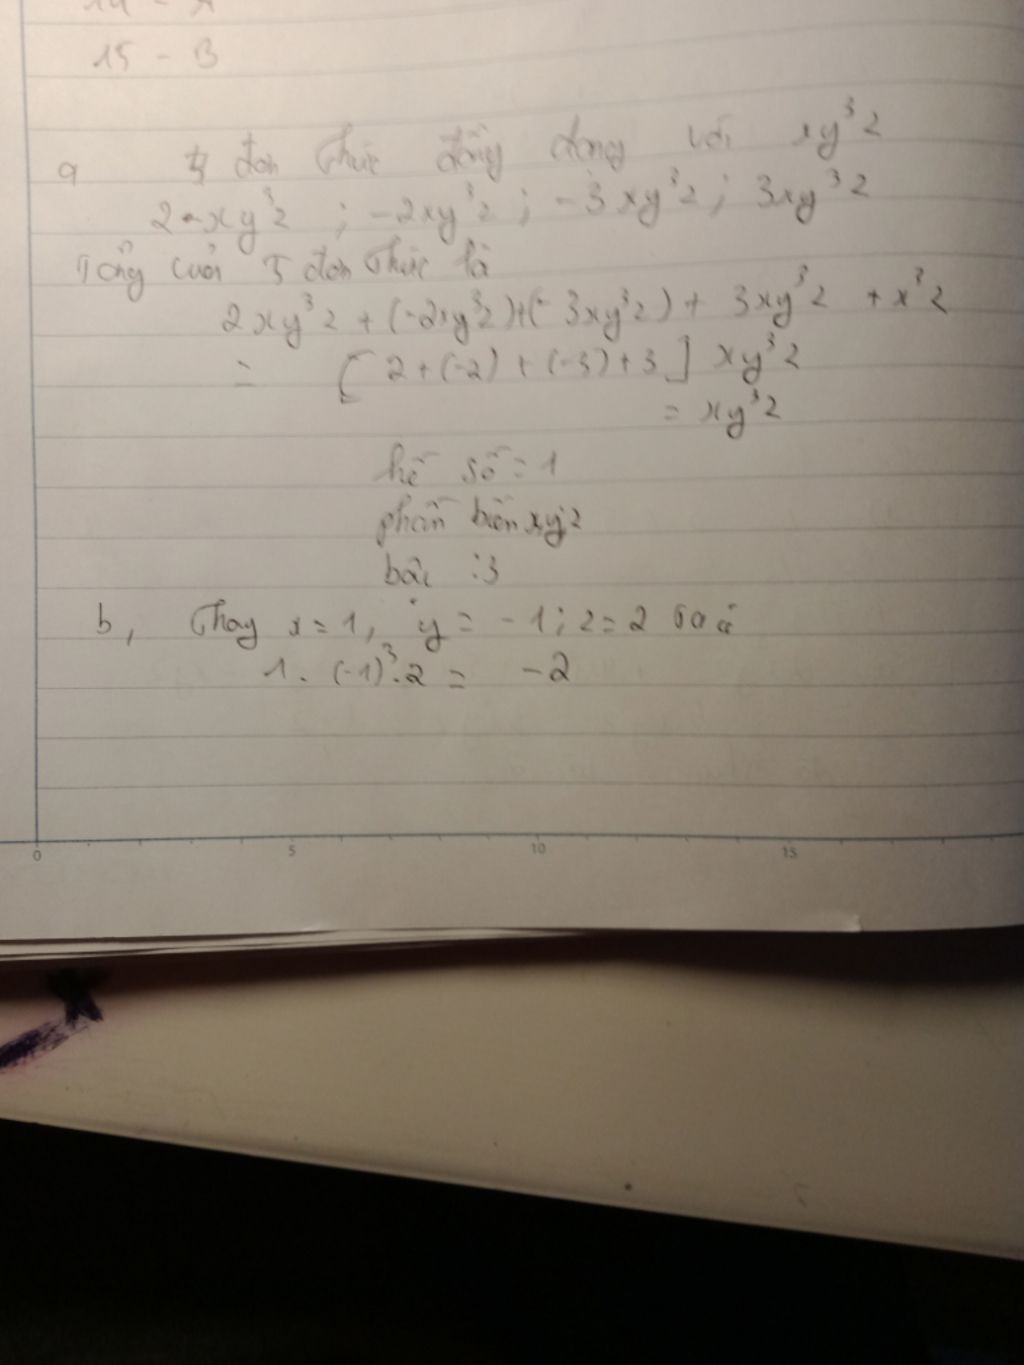 15 - B
a 4 đơn thức đồng dạng với xy³z
2xy³z ; -2xy³z ; -3xy³z ; 3xy³z
Tổng của 5 đơn thức là
2xy³z + (-2xy³z) + (-3xy³z) + 3xy³z + x³z
= [2 + (-2) + (-3) + 3] xy³z
= xy³z
hế số = 1
phần biến xyz
bâc : 3
b, Thay x = 1, y = -1 ; z = 2
1. (-1)³.2 = -2
0 5 10 15